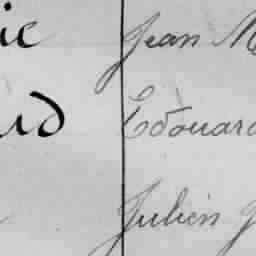 ie Jean M
ud Edouard
Julien J